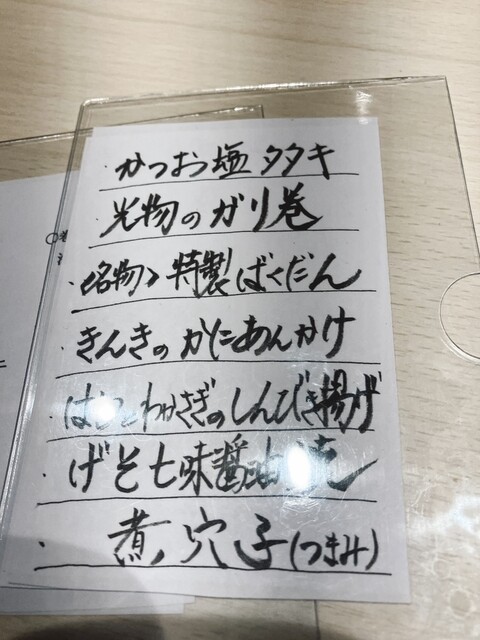 ・かつお塩タタキ
・光物のガリ巻
・<名物> 特製ばくだん
・きんきのかにあんかけ
・はしとわかさぎのしんびき揚げ
・げそ七味醤油焼
・煮穴子(つまみ)